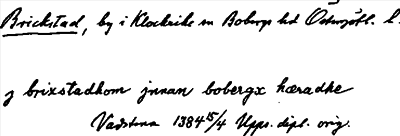 Brickstad, by i Klockrike sn Bobergs hd Östergötl. l.
j brixstadhom jnnan bobergx hæradhe
Vadstena 1384 15/4 Upps. dipl. orig.